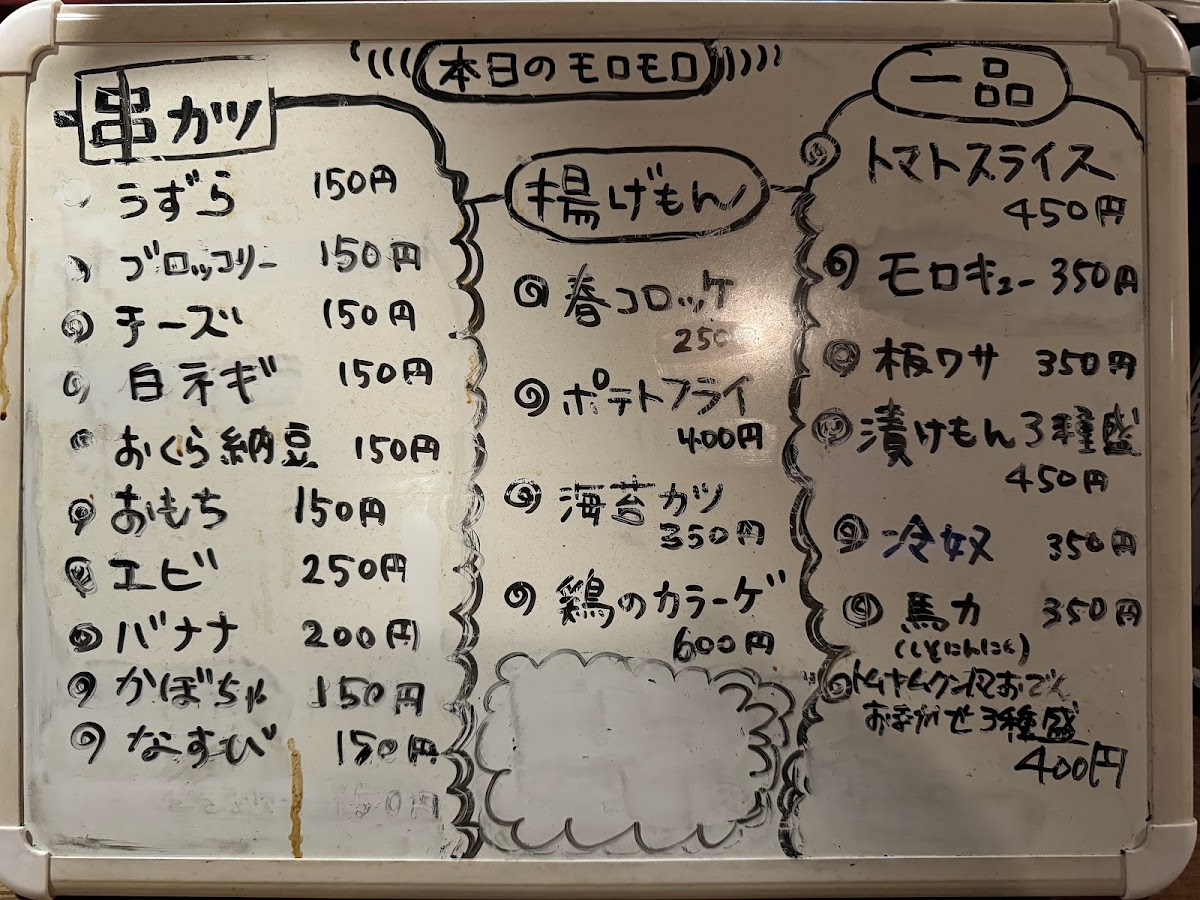 本日のモロモロ
串カツ
うずら 150円
ブロッコリー 150円
チーズ 150円
白ネギ 150円
おくら納豆 150円
おもち 150円
エビ 250円
バナナ 200円
かぼちゃ 150円
なすび 150円
150円
揚げもん
春コロッケ
250円
ポテトフライ
400円
海苔カツ
350円
鶏のカラーゲ
600円
一品
トマトスライス
450円
モロキュー 350円
板ワサ 350円
漬けもん3種盛
450円
冷奴 350円
馬力 350円
(しそにんにく)
トムヤムクン風おでん
おまかせ3種盛
400円